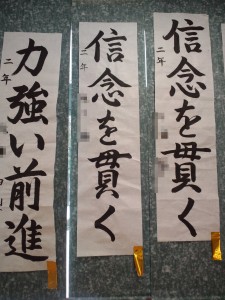 信念を貫く
二年
信念を貫く
二年
力強い前進
二年